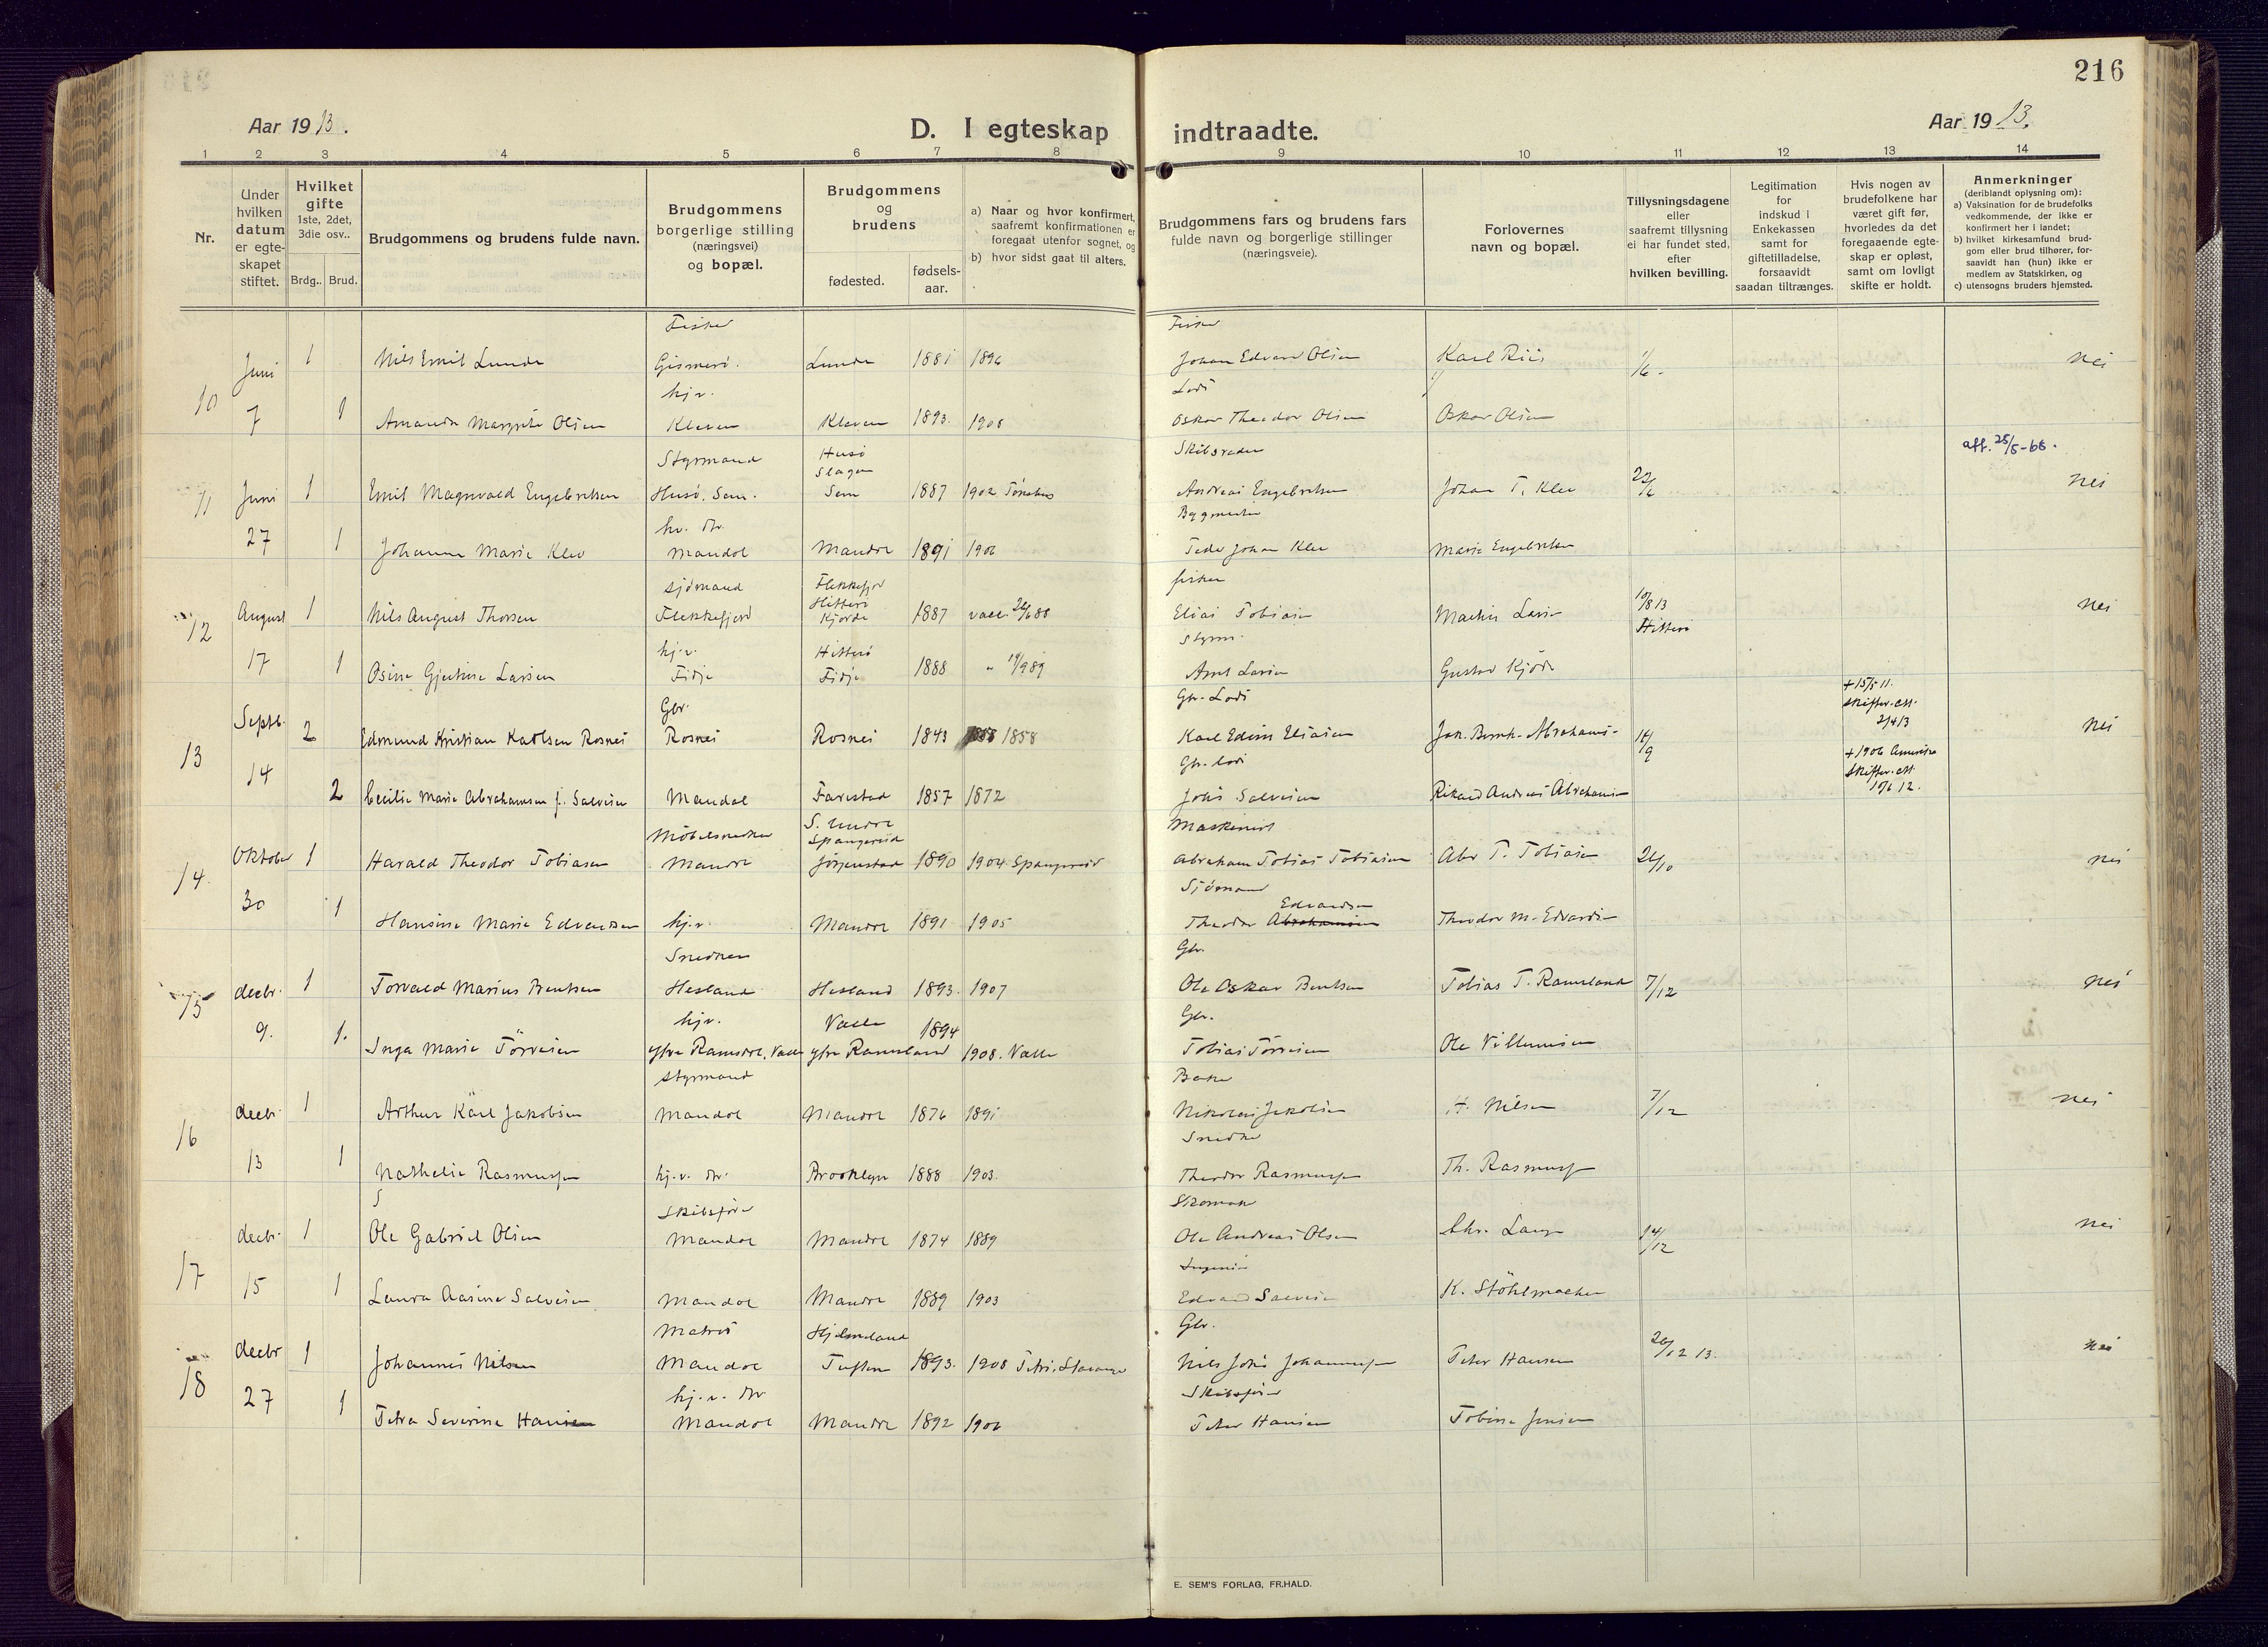 216
Aar 1913.
D. I egteskap indtraadte.
Aar 1913.
1 2 3 4 5 6 7 8 9 10 11 12 13 14
Nr.
Under hvilken datum er egteskapet stiftet.
Hvilket gifte
1ste, 2det, 3die osv..
Brdg.. Brud.
Brudgommens og brudens fulde navn.
Brudgommens borgerlige stilling (næringsvei) og bopæl.
Brudgommens og brudens
fødested.
fødsels-aar.
a) Naar og hvor konfirmert, saafremt konfirmationen er foregaat utenfor sognet, og
b) hvor sidst gaat til alters.
Brudgommens fars og brudens fars fulde navn og borgerlige stillinger (næringsveie).
Forlovernes navn og bopæl.
Tillysningsdagene eller saafremt tillysning ei har fundet sted, efter hvilken bevilling.
Legitimation for indskud i Enkekassen samt for giftetilladelse, forsaavidt saadan tiltrænges.
Hvis nogen av brudefolkene har været gift før, hvorledes da det foregaaende egteskap er opløst, samt om lovligt skifte er holdt.
Anmerkninger
(deriblandt oplysning om):
a) Vaksination for de brudefolks vedkommende, der ikke er konfirmert her i landet;
b) hvilket kirkesamfund brudgom eller brud tilhører, forsaavidt han (hun) ikke er medlem av Statskirken, og
c) utensogns bruders hjemsted.
Fisker Fisker
10 Juni 1 Nils Emil Lunde Gismerö. Lunde 1881 1896 Johan Edvard Olsen Karl Riis 1/6 - nei
hj.v. Lods
7 1 Amanda Margrete Olsen Kleven Kleven 1893. 1908 Oskar Theodor Olsen Oskar Olsen
Styrmand Husö Slagen Skibsreder aff. 25/5-66.
11 Juni 1 Emil Magnvald Engebretsen Husö. Sem. Sem 1887 1902 Tönsberg Andreas Engebretsen Johan T. Klev 22/6 nei
hv. dtr. Bygmester
27 1 Johanne Marie Klev Mandal Mandal 1891 1906 Peder Johan Klev Marie Engebretsen
Sjömand Flekkefjord Hitterö fisker
12 August 1 Nils August Thorsen Flekkefjord Kjörde 1887 vacc. 24/6 88 Elias Tobiasen Mathis Larsen 10/8 13 Hitterö nei
hj.v. Hitterö Styrm.
17 1 Osine Gjertine Larsen Fidje Fidje 1888 " 14/9 89 Arnt Larsen Gustav Kjörde
Gbr. Gbr. Lods + 15/5 11. skifter.att. 2/4 13
13 Septb. 2 Edmund Kristian Karlsen Rosnes Rosnes Rosnes 1843 1858 Karl Edim Eliasen Jak. Bernh. Abrahams- 14/9 nei
Gbr. lods + 1906 Amerika skifter.att 10/6 12.
14 2 Cecilie Marie Abrahamsen f. Salvesen Mandal Farestad 1857 1872 Johs Salvesen Rikard Andreas Abrahamsen
Möbelsnedker S. Undal Spangereid Maskinist
14 Oktober 1 Harald Theodor Tobiasen Mandal Jörgenstad 1890 1904 Spangereid Abraham Tobias Tobiasen Abr T. Tobiasen 26/10 nei
Sjömand Edvardsen
30 1 Hansine Marie Edvardsen hj.v. Mandal 1891 1905 Theodor Abrahamsen Theodor M. Edvardsen
Snedker Gbr.
15 decbr. 1 Torvald Marius Bentsen Hesland Hesland 1893. 1907 Ole Oskar Bentsen Tobias T. Ramsland 7/12 nei
hj.v. Valle 1894 Gbr.
9. 1. Inga Marie Törresen ytre Ramsdal, Valle ytre Ramsland 1908. Valle Tobias Törresen Ole Villumsen
Styrmand Baker
16 decbr. 1 Arthur Karl Jakobsen Mandal Mandal 1876 1891 Nikolai Jakobsen H. Nilsen 7/12 nei
Snedker
13 1 Nathalie Rasmussen hj.v. dtr. Brooklyn 1888 1903. Theodor Rasmussen Th. Rasmussen
Skibsförer Skomaker
17 decbr. 1 Ole Gabriel Olsen Mandal Mandal 1874 1889 Ole Andreas Olsen Chr. Lange 14/12 nei
Ingeniör
15 1 Laura Aasine Salvesen Mandal Mandal 1889 1903 Edvard Salvesen K. Stöhlmacher
Matros Hjelmeland Gbr.
18 decbr 1 Johannes Nilsen Mandal Tuften 1893. 1908 Petri, Stavanger Nils Johs Johannessen Peter Hansen 20/12 13. nei
hj.v. dtr Skibsförer
27 1 Petra Severine Hansen Mandal Mandal 1892 1906 Peter Hansen Tobine Jensen
E. SEM'S FORLAG, FR.HALD.